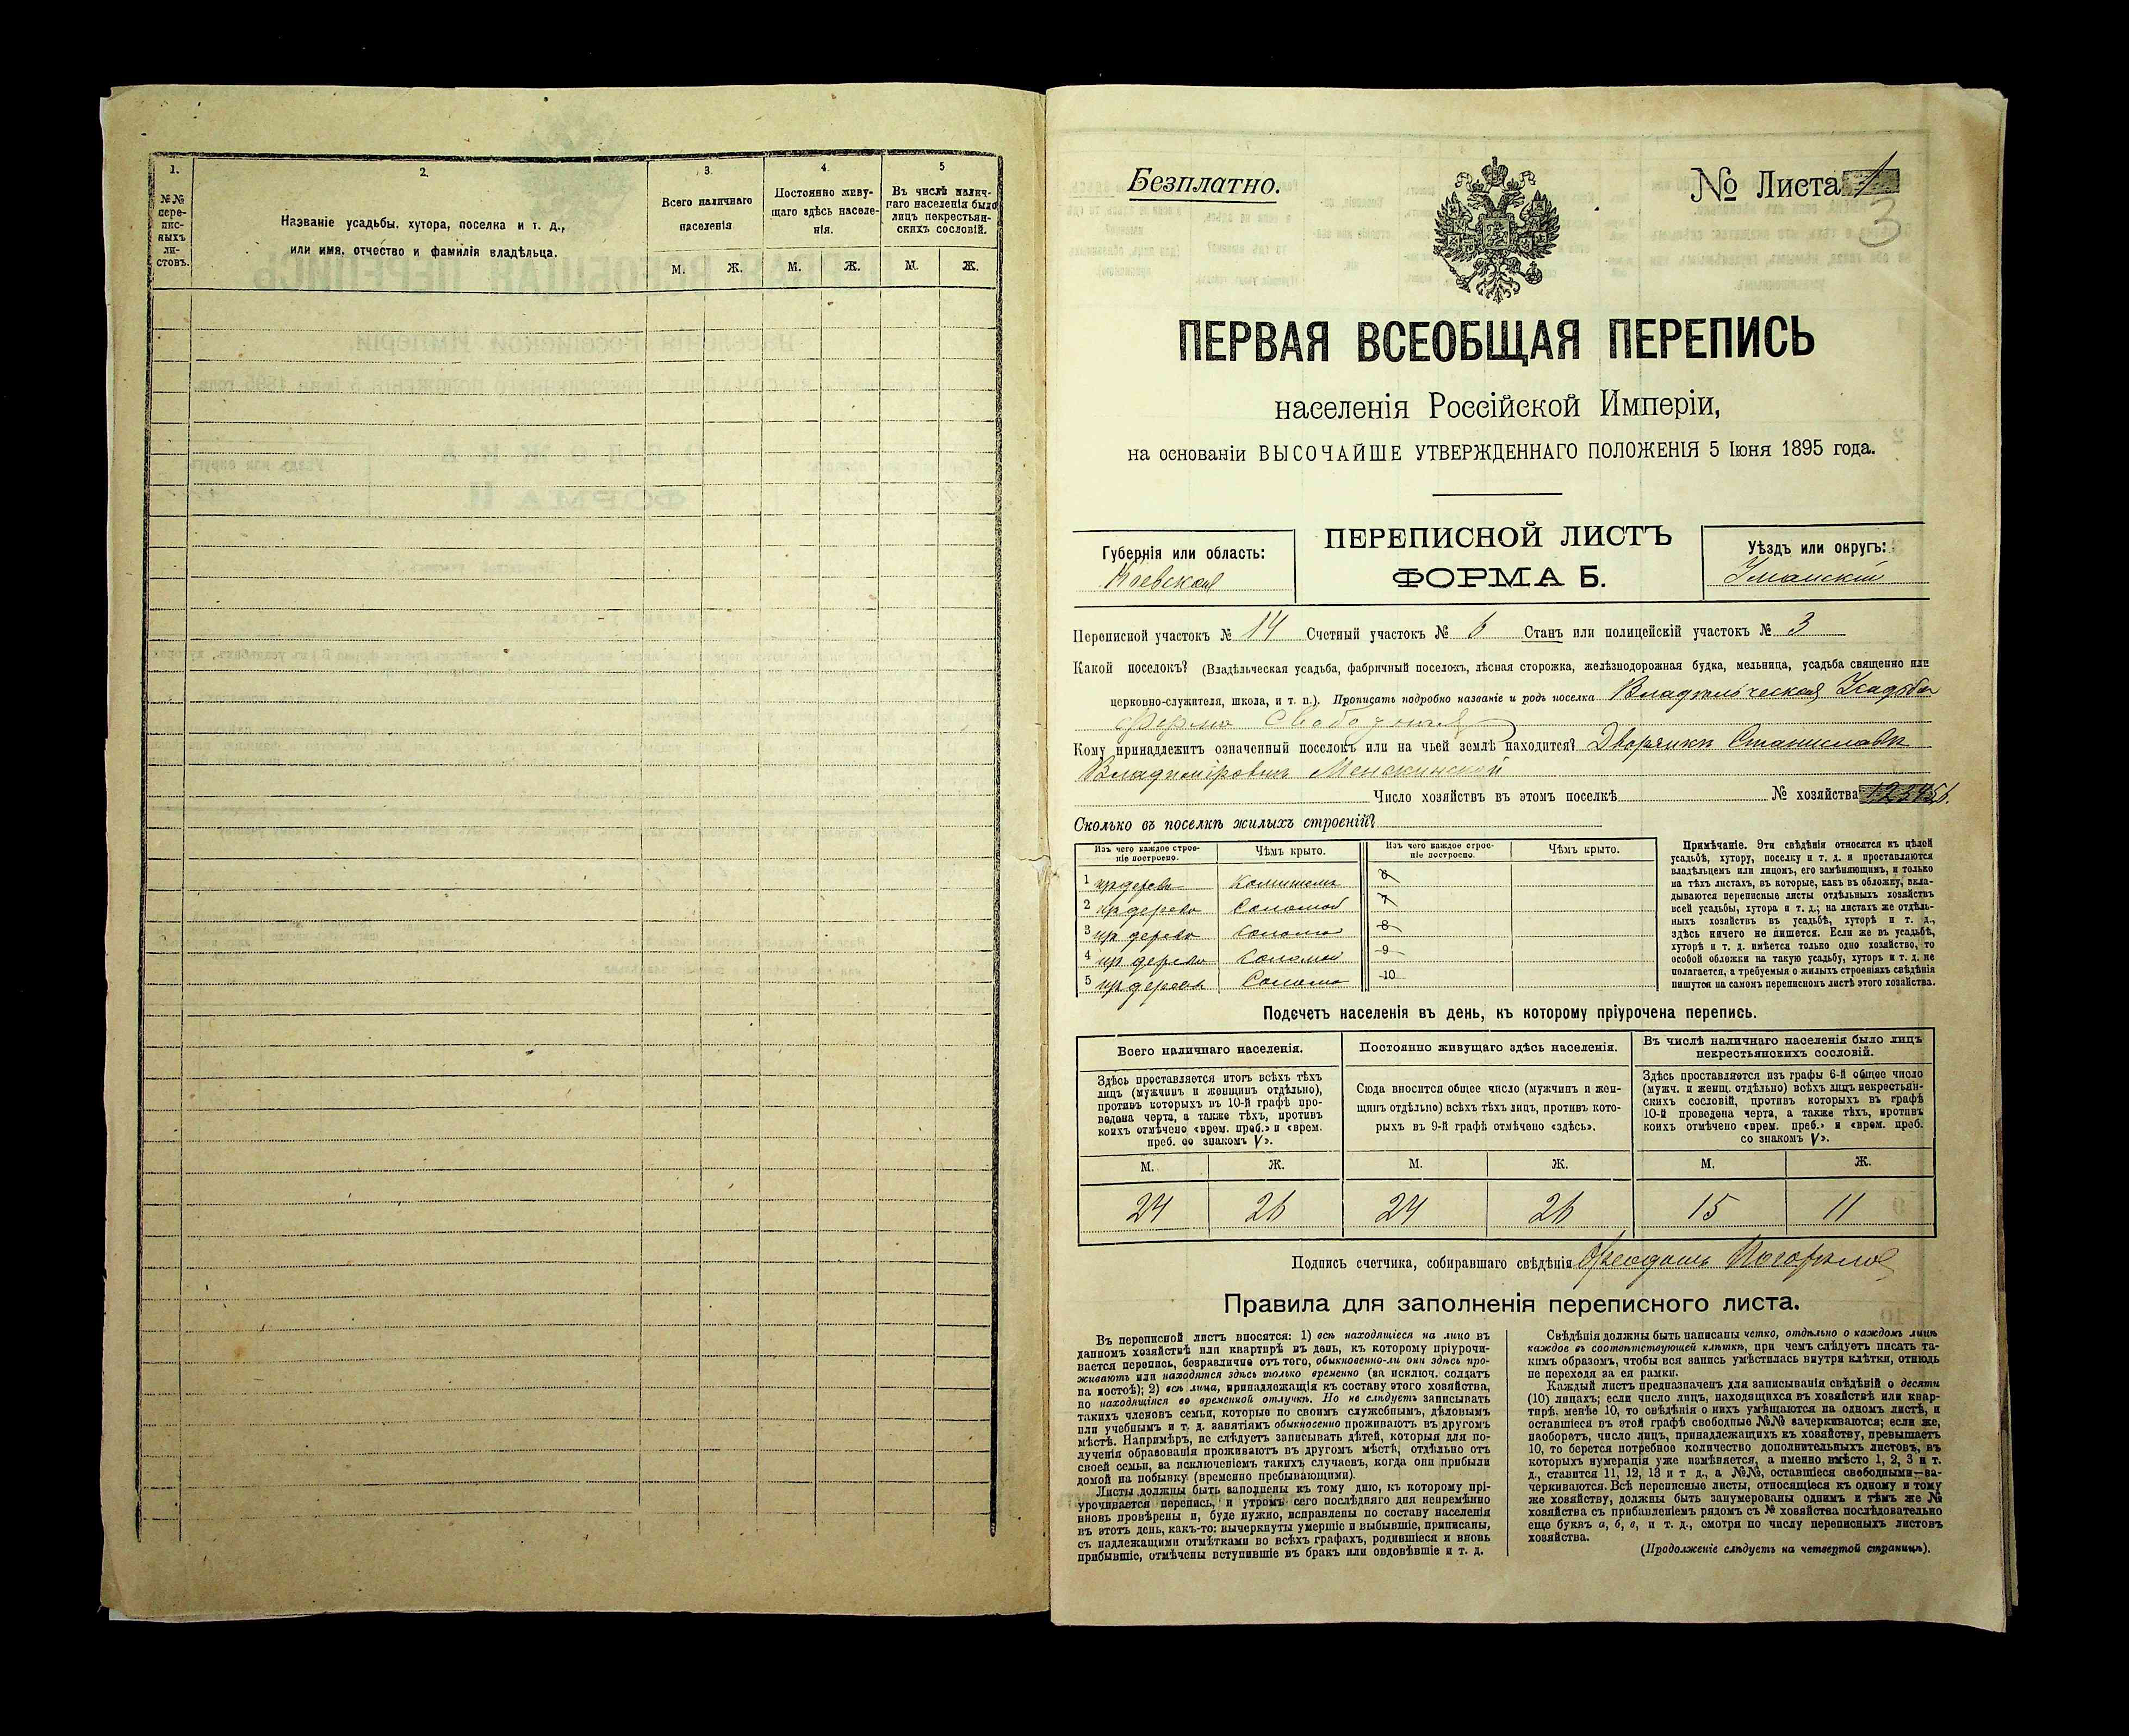 1.
2.
3.
4.
5
№№ пере-
пис-
ныхъ
ли-
стовъ.
Названіе усадьбы, хутора, поселка и т. д.,
или имя, отчество и фамилія владѣльца.
Всего наличнаго
населенія
Постоянно живу-
щаго здѣсь населе-
нія.
Въ числѣ налич-
наго населенія было
лицъ некрестьян-
скихъ сословій.
М. Ж. М. Ж. М. Ж.
Безплатно.
№ Листа 1
3
ПЕРВАЯ ВСЕОБЩАЯ ПЕРЕПИСЬ
населенія Россійской Имперіи,
на основаніи ВЫСОЧАЙШЕ УТВЕРЖДЕННАГО ПОЛОЖЕНІЯ 5 Іюня 1895 года.
Губернія или область:
Кіевская
ПЕРЕПИСНОЙ ЛИСТЪ
ФОРМА Б.
Уѣздъ или округъ:
Уманскій
Переписной участокъ № 14 Счетный участокъ № 6 Станъ или полицейскій участокъ № 3
Какой поселокъ? (Владѣльческая усадьба, фабричный поселокъ, лѣсная сторожка, желѣзнодорожная будка, мельница, усадьба священно или
церковно-служителя, школа, и т. п.). Прописать подробно названіе и родъ поселка Владѣльческая Усадьба
Ферма Свободная
Кому принадлежитъ означенный поселокъ или на чьей землѣ находится? Дворянина Станислава
Владиміровича
Число хозяйствъ въ этомъ поселкѣ № хозяйства 123456.
Сколько въ поселкѣ жилыхъ строеній?
Изъ чего каждое строе-
ніе построено.
Чѣмъ крыто.
Изъ чего каждое строе-
ніе построено.
Чѣмъ крыто.
1 изъ дерева Камышемъ 6
2 изъ дерева Соломой 7
3 изъ дерева Соломой 8
4 изъ дерева Соломой 9
5 изъ дерева Соломой 10
Примѣчаніе. Эти свѣдѣнія относятся къ цѣлой
усадьбѣ, хутору, поселку и т. д. и проставляются
владѣльцемъ или лицомъ, его замѣняющимъ, и только
на тѣхъ листахъ, въ которые, какъ въ обложку, вкла-
дываются переписные листы отдѣльныхъ хозяйствъ
всей усадьбы, хутора и т. д.; на листахъ же отдѣль-
ныхъ хозяйствъ въ усадьбѣ, хуторѣ и т. д.,
здѣсь ничего не пишется. Если же въ усадьбѣ,
хуторѣ и т. д. имѣется только одно хозяйство, то
особой обложки на такую усадьбу, хуторъ и т. д. не
полагается, а требуемыя о жилыхъ строеніяхъ свѣдѣнія
пишутся на самомъ переписномъ листѣ этого хозяйства.
Подсчетъ населенія въ день, къ которому пріурочена перепись.
Всего наличнаго населенія.
Здѣсь проставляется итогъ всѣхъ тѣхъ
лицъ (мужчинъ и женщинъ отдѣльно),
противъ которыхъ въ 10-й графѣ про-
ведена черта, а также тѣхъ, противъ
коихъ отмѣчено «врем. преб.» и «врем.
преб. со знакомъ V».
Постоянно живущаго здѣсь населенія.
Сюда вносится общее число (мужчинъ и жен-
щинъ отдѣльно) всѣхъ тѣхъ лицъ, противъ кото-
рыхъ въ 9-й графѣ отмѣчено «здѣсь».
Въ числѣ наличнаго населенія было лицъ
некрестьянскихъ сословій.
Здѣсь проставляется изъ графы 6-й общее число
(мужч. и женщ. отдѣльно) всѣхъ лицъ некрестьян-
скихъ сословій, противъ которыхъ въ графѣ
10-й проведена черта, а также тѣхъ, противъ
коихъ отмѣчено «врем. преб.» и «врем. преб.
со знакомъ V».
М. Ж. М. Ж. М. Ж.
24 26 24 26 15 11
Подпись счетчика, собиравшаго свѣдѣнія
Правила для заполненія переписного листа.
Въ переписной листъ вносятся: 1) всѣ находящіеся на лицо въ
данномъ хозяйствѣ или квартирѣ въ день, къ которому пріурочи-
вается перепись, безразлично отъ того, обыкновенно-ли они здѣсь про-
живаютъ или находятся здѣсь только временно (за исключ. солдатъ
на постоѣ); 2) всѣ лица, принадлежащія къ составу этого хозяйства,
но находящіяся во временной отлучкѣ. Но не слѣдуетъ записывать
такихъ членовъ семьи, которые по своимъ служебнымъ, дѣловымъ
или учебнымъ и т. д. занятіямъ обыкновенно проживаютъ въ другомъ
мѣстѣ. Напримѣръ, не слѣдуетъ записывать дѣтей, которыя для по-
лученія образованія проживаютъ въ другомъ мѣстѣ, отдѣльно отъ
своей семьи, за исключеніемъ такихъ случаевъ, когда они прибыли
домой на побывку (временно пребывающими).
Листы должны быть заполнены къ тому дню, къ которому прі-
урочивается перепись, и утромъ сего послѣдняго дня непремѣнно
вновь провѣрены и, буде нужно, исправлены по составу населенія
въ этотъ день, какъ-то: вычеркнуты умершіе и выбывшіе, приписаны,
съ надлежащими отмѣтками во всѣхъ графахъ, родившіеся и вновь
прибывшіе, отмѣчены вступившіе въ бракъ или овдовѣвшіе и т. д.
Свѣдѣнія должны быть написаны четко, отдѣльно о каждомъ лицѣ
каждое въ соотвѣтствующей клѣткѣ, при чемъ слѣдуетъ писать та-
кимъ образомъ, чтобы вся запись умѣстилась внутри клѣтки, отнюдь
не переходя за ея рамки.
Каждый листъ предназначенъ для записыванія свѣдѣній о десяти
(10) лицахъ; если число лицъ, находящихся въ хозяйствѣ или квар-
тирѣ, менѣе 10, то свѣдѣнія о нихъ умѣщаются на одномъ листѣ, и
оставшіеся въ этой графѣ свободные №№ зачеркиваются; если же,
наоборотъ, число лицъ, принадлежащихъ къ хозяйству, превышаетъ
10, то берется потребное количество дополнительныхъ листовъ, въ
которыхъ нумерація уже измѣняется, а именно вмѣсто 1, 2, 3 и т.
д., ставится 11, 12, 13 и т д., а №№, оставшіеся свободными—за-
черкиваются. Всѣ переписные листы, относящіеся къ одному и тому
же хозяйству, должны быть занумерованы однимъ и тѣмъ же №
хозяйства съ прибавленіемъ рядомъ съ № хозяйства послѣдовательно
еще буквъ а, б, в, и т. д., смотря по числу переписныхъ листовъ
хозяйства.
(Продолженіе слѣдуетъ на четвертой страницѣ).